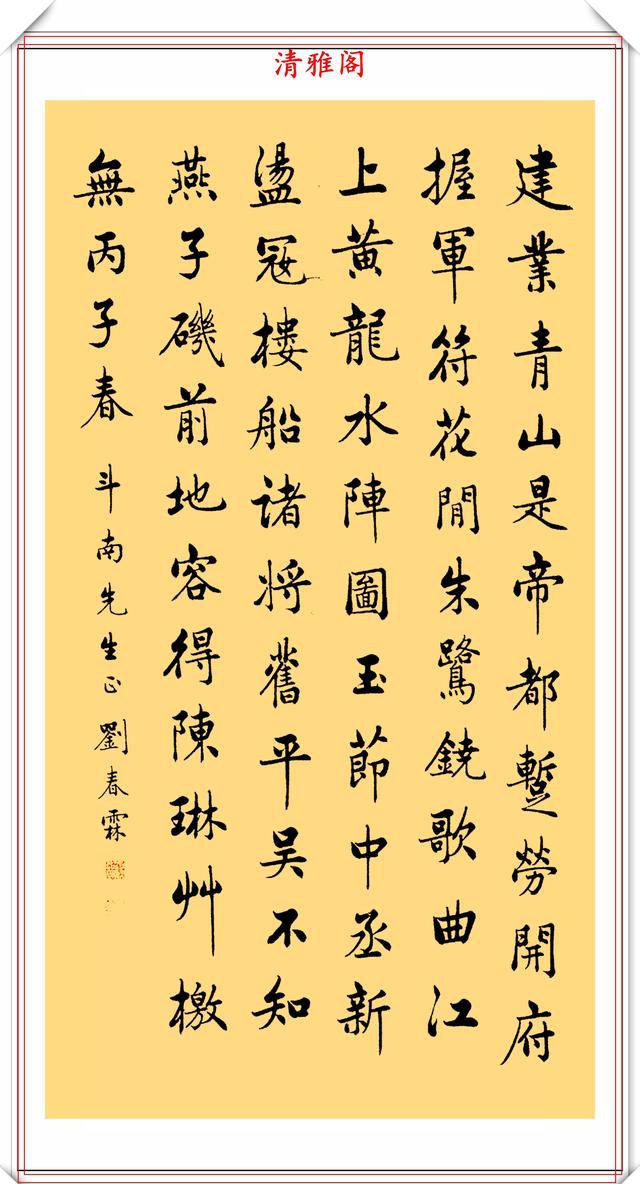 清雅阁
建業青山是帝都蹔勞開府
握軍符花閒朱鷺鐃歌曲江
上黃龍水陣圖玉節中丞新
盪寇樓船諸將舊平吳不知
燕子磯前地容得陳琳艸檄
無丙子春 斗南先生正 劉春霖